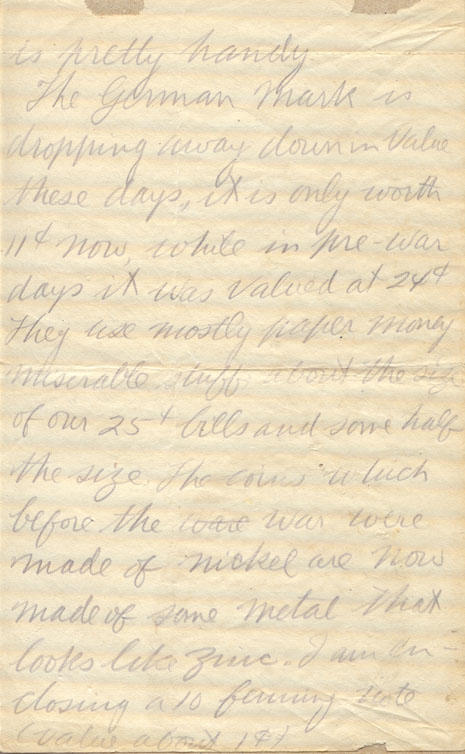 is pretty handy.
The German Mark is
dropping away down in Value
these days, it is only worth
11¢ now, while in pre-war
days it was valued at 24¢
They use mostly paper money
miserable stuff about the size
of our 25¢ bills and some half
the size. The coins which
before the ware war were
made of nickel are now
made of some metal that
looks like zinc. I am en-
closing a 10 fenning note
(value about 1¢)